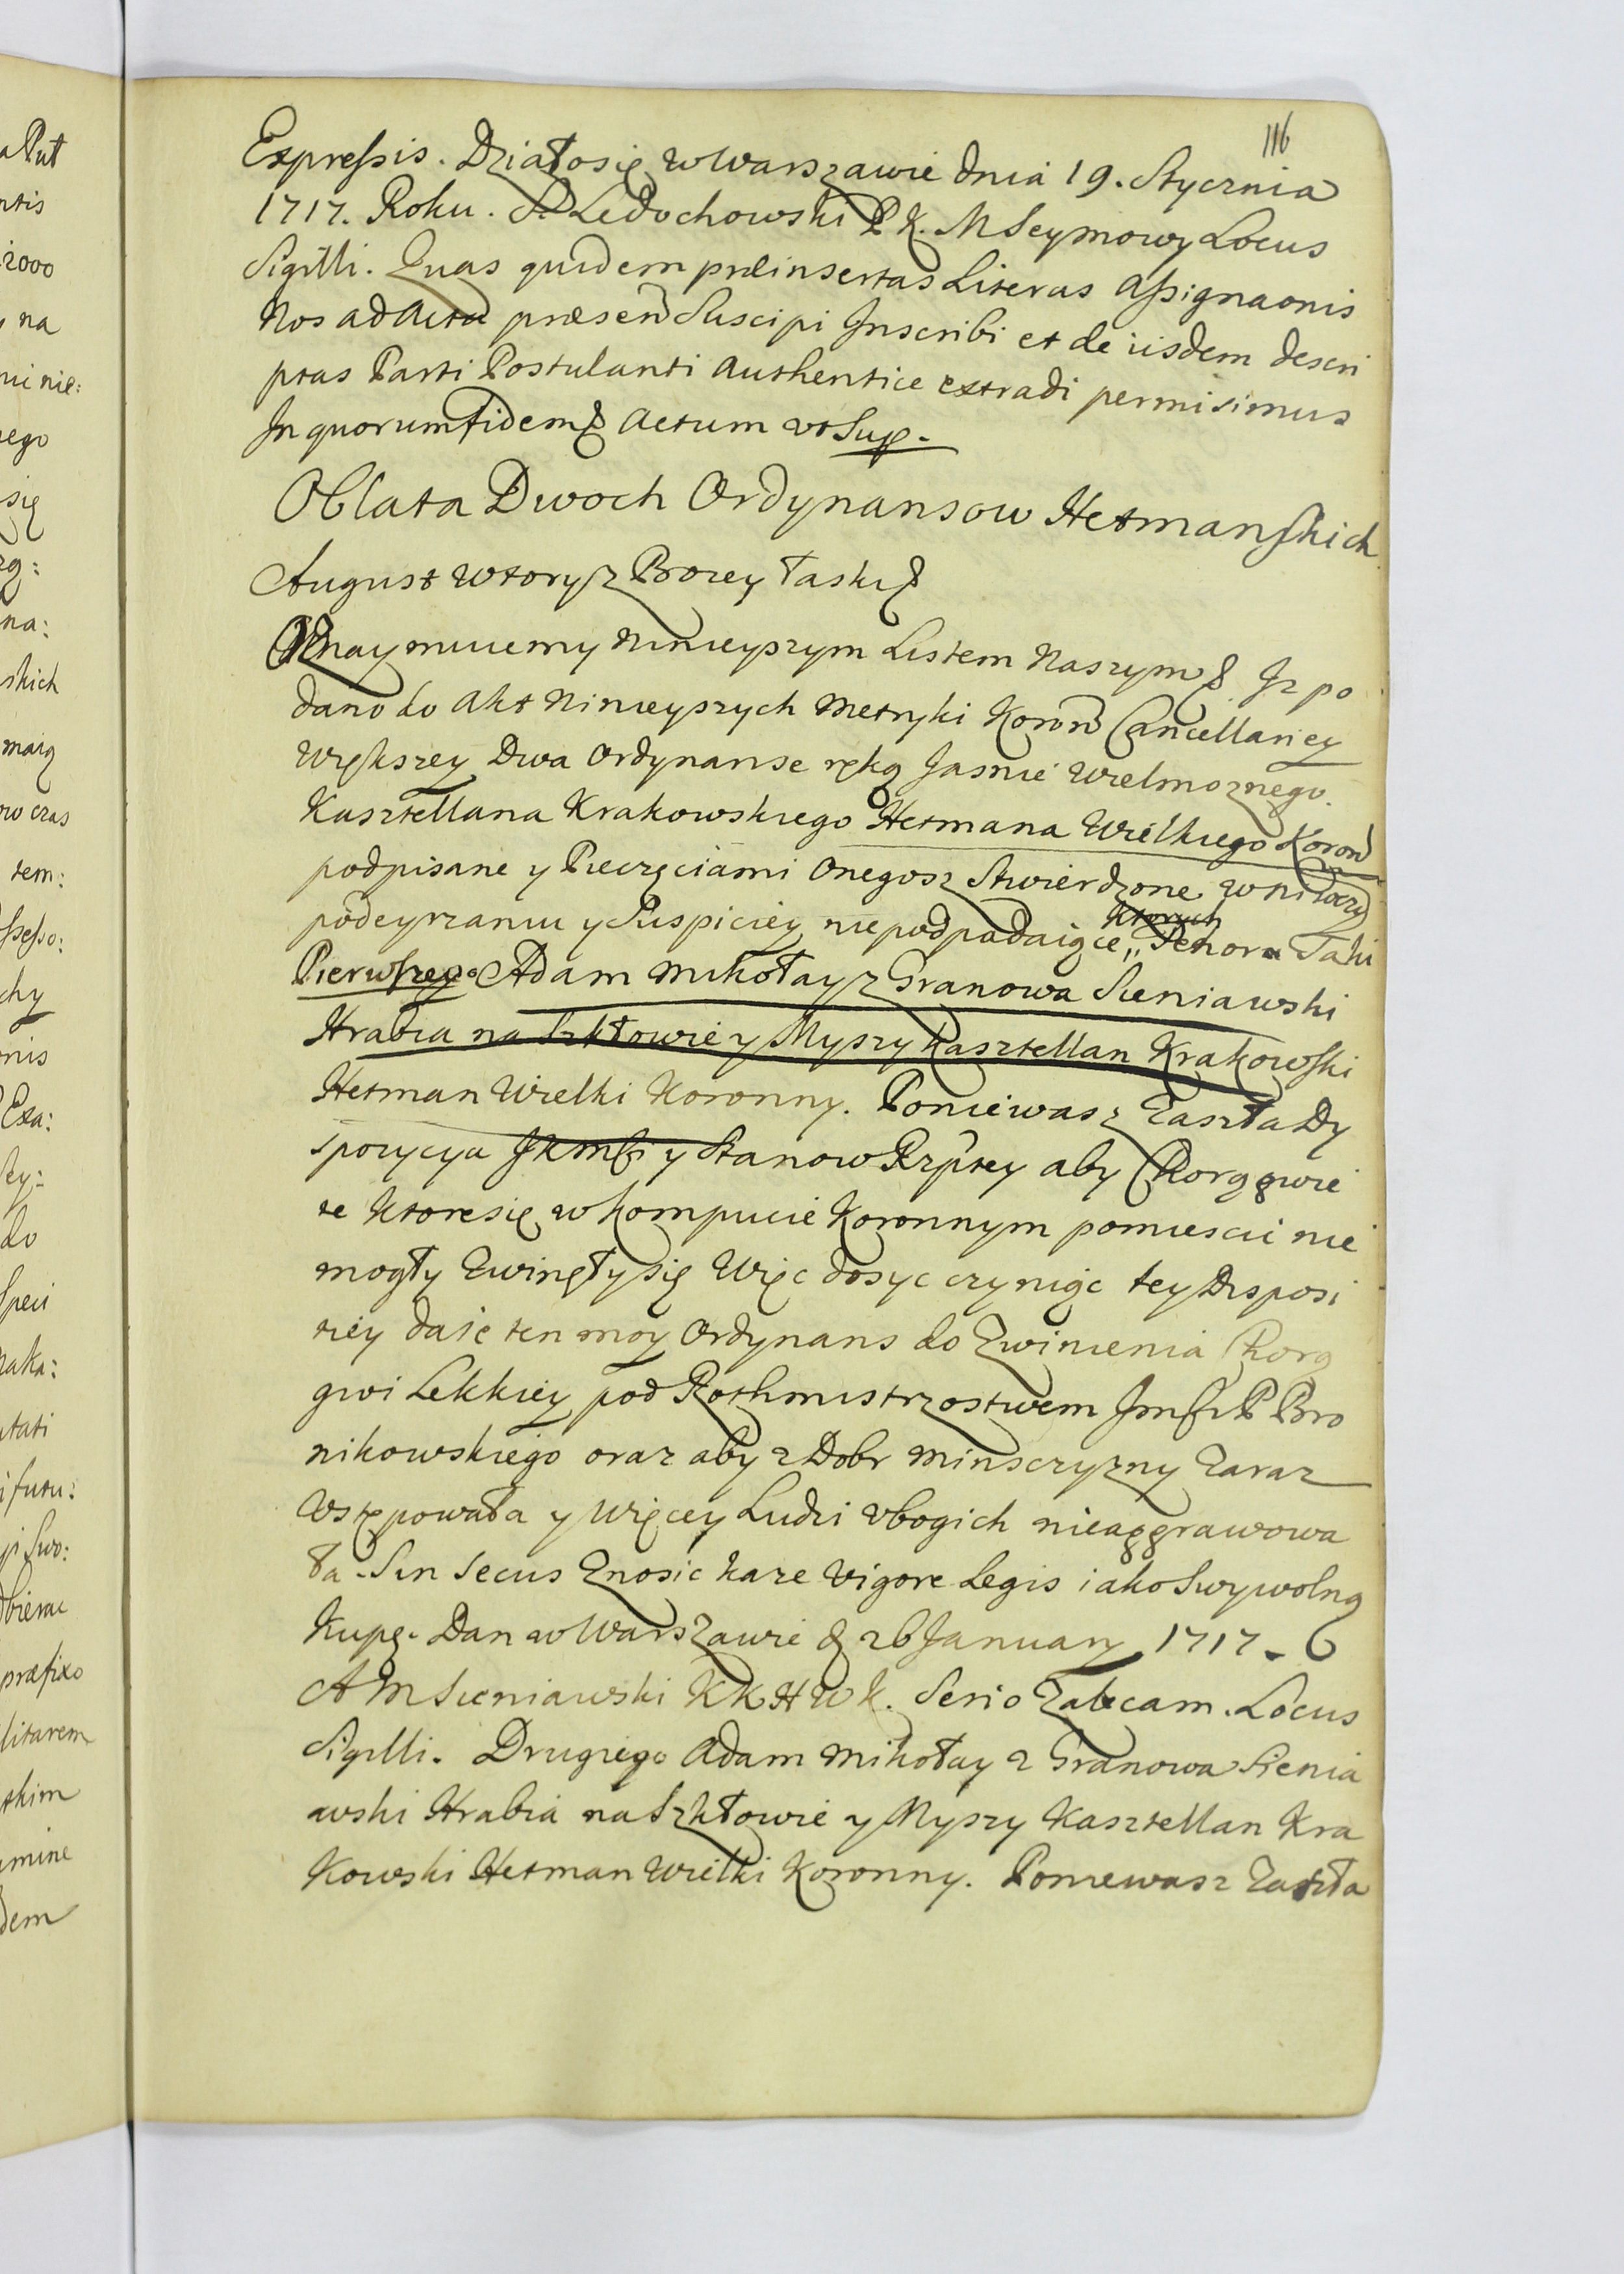 116
Expressis. Działosię w Warszawie dnia 19. Stycznia
1717. Roku. S. Ledochowski P K. M Seymowy Locus
Sigilli. Quas quidem præinsertas Literas Assignaonis
Nos ad Acta præsen Suscipi Inscribi et de iisdem descri
ptas Parti Postulanti Authentice extradi permisimus
In quorum fidem & Actum vt Sup.
Oblata Dwoch Ordynansow Hetmanskich
August wtory z Bozey łaski &
Oznaymuiemy Ninieyszym Listem Naszym & Iz po
dano do Akt Ninieyszych Metryki Koron Cancellariey
Większey Dwa Ordynanse ręką Jasnie Wielmoznego
Kasztellana Krakowskiego Hetmana Wielkiego Koron
podpisane y Pieczęciami Onegosz Stwierdzone w niwczy
podeyrzaniu y Suspiciey niepodpadaiące,, Ktorych Tenora Taki
Pierwszego Adam Mikołay z Granowa Sieniawski
Hrabia na Szkłowie y Myszy Kasztellan Krakowski
Hetman Wielki Koronny. Poniewasz Zaszła Dy
spozycya JKMsci y Stanow Rzptey aby Chorągwie
te Ktoresię w Kompucie Koronnym pomiescic nie
mogły Zwinęłysię Więc dosyc czyniąc tey Disposi
tiey daię ten moy Ordynans do Zwinienia Chorą
gwi Lekkiey pod Rothmistrzostwem Jmsci P Bro
nikowskiego oraz aby z Dobr Minsczyzny Zaraz
Wstępowała y więcey Ludzi vbogich nieaggrawowa
ła. Sin Secus Znosic kaze Vigore Legis iako Swywolną
Kupę. Dan w Warszawie & 26 January 1717.
A M Sieniawski K K H W K. Serio Zalecam. Locus
Sigilli. Drugiego Adam Mikołay z Granowa Sienia
wski Hrabia na Szkłowie y Myszy Kasztellan Kra
Kowski Hetman Wielki Koronny. Poniewasz Zaszła